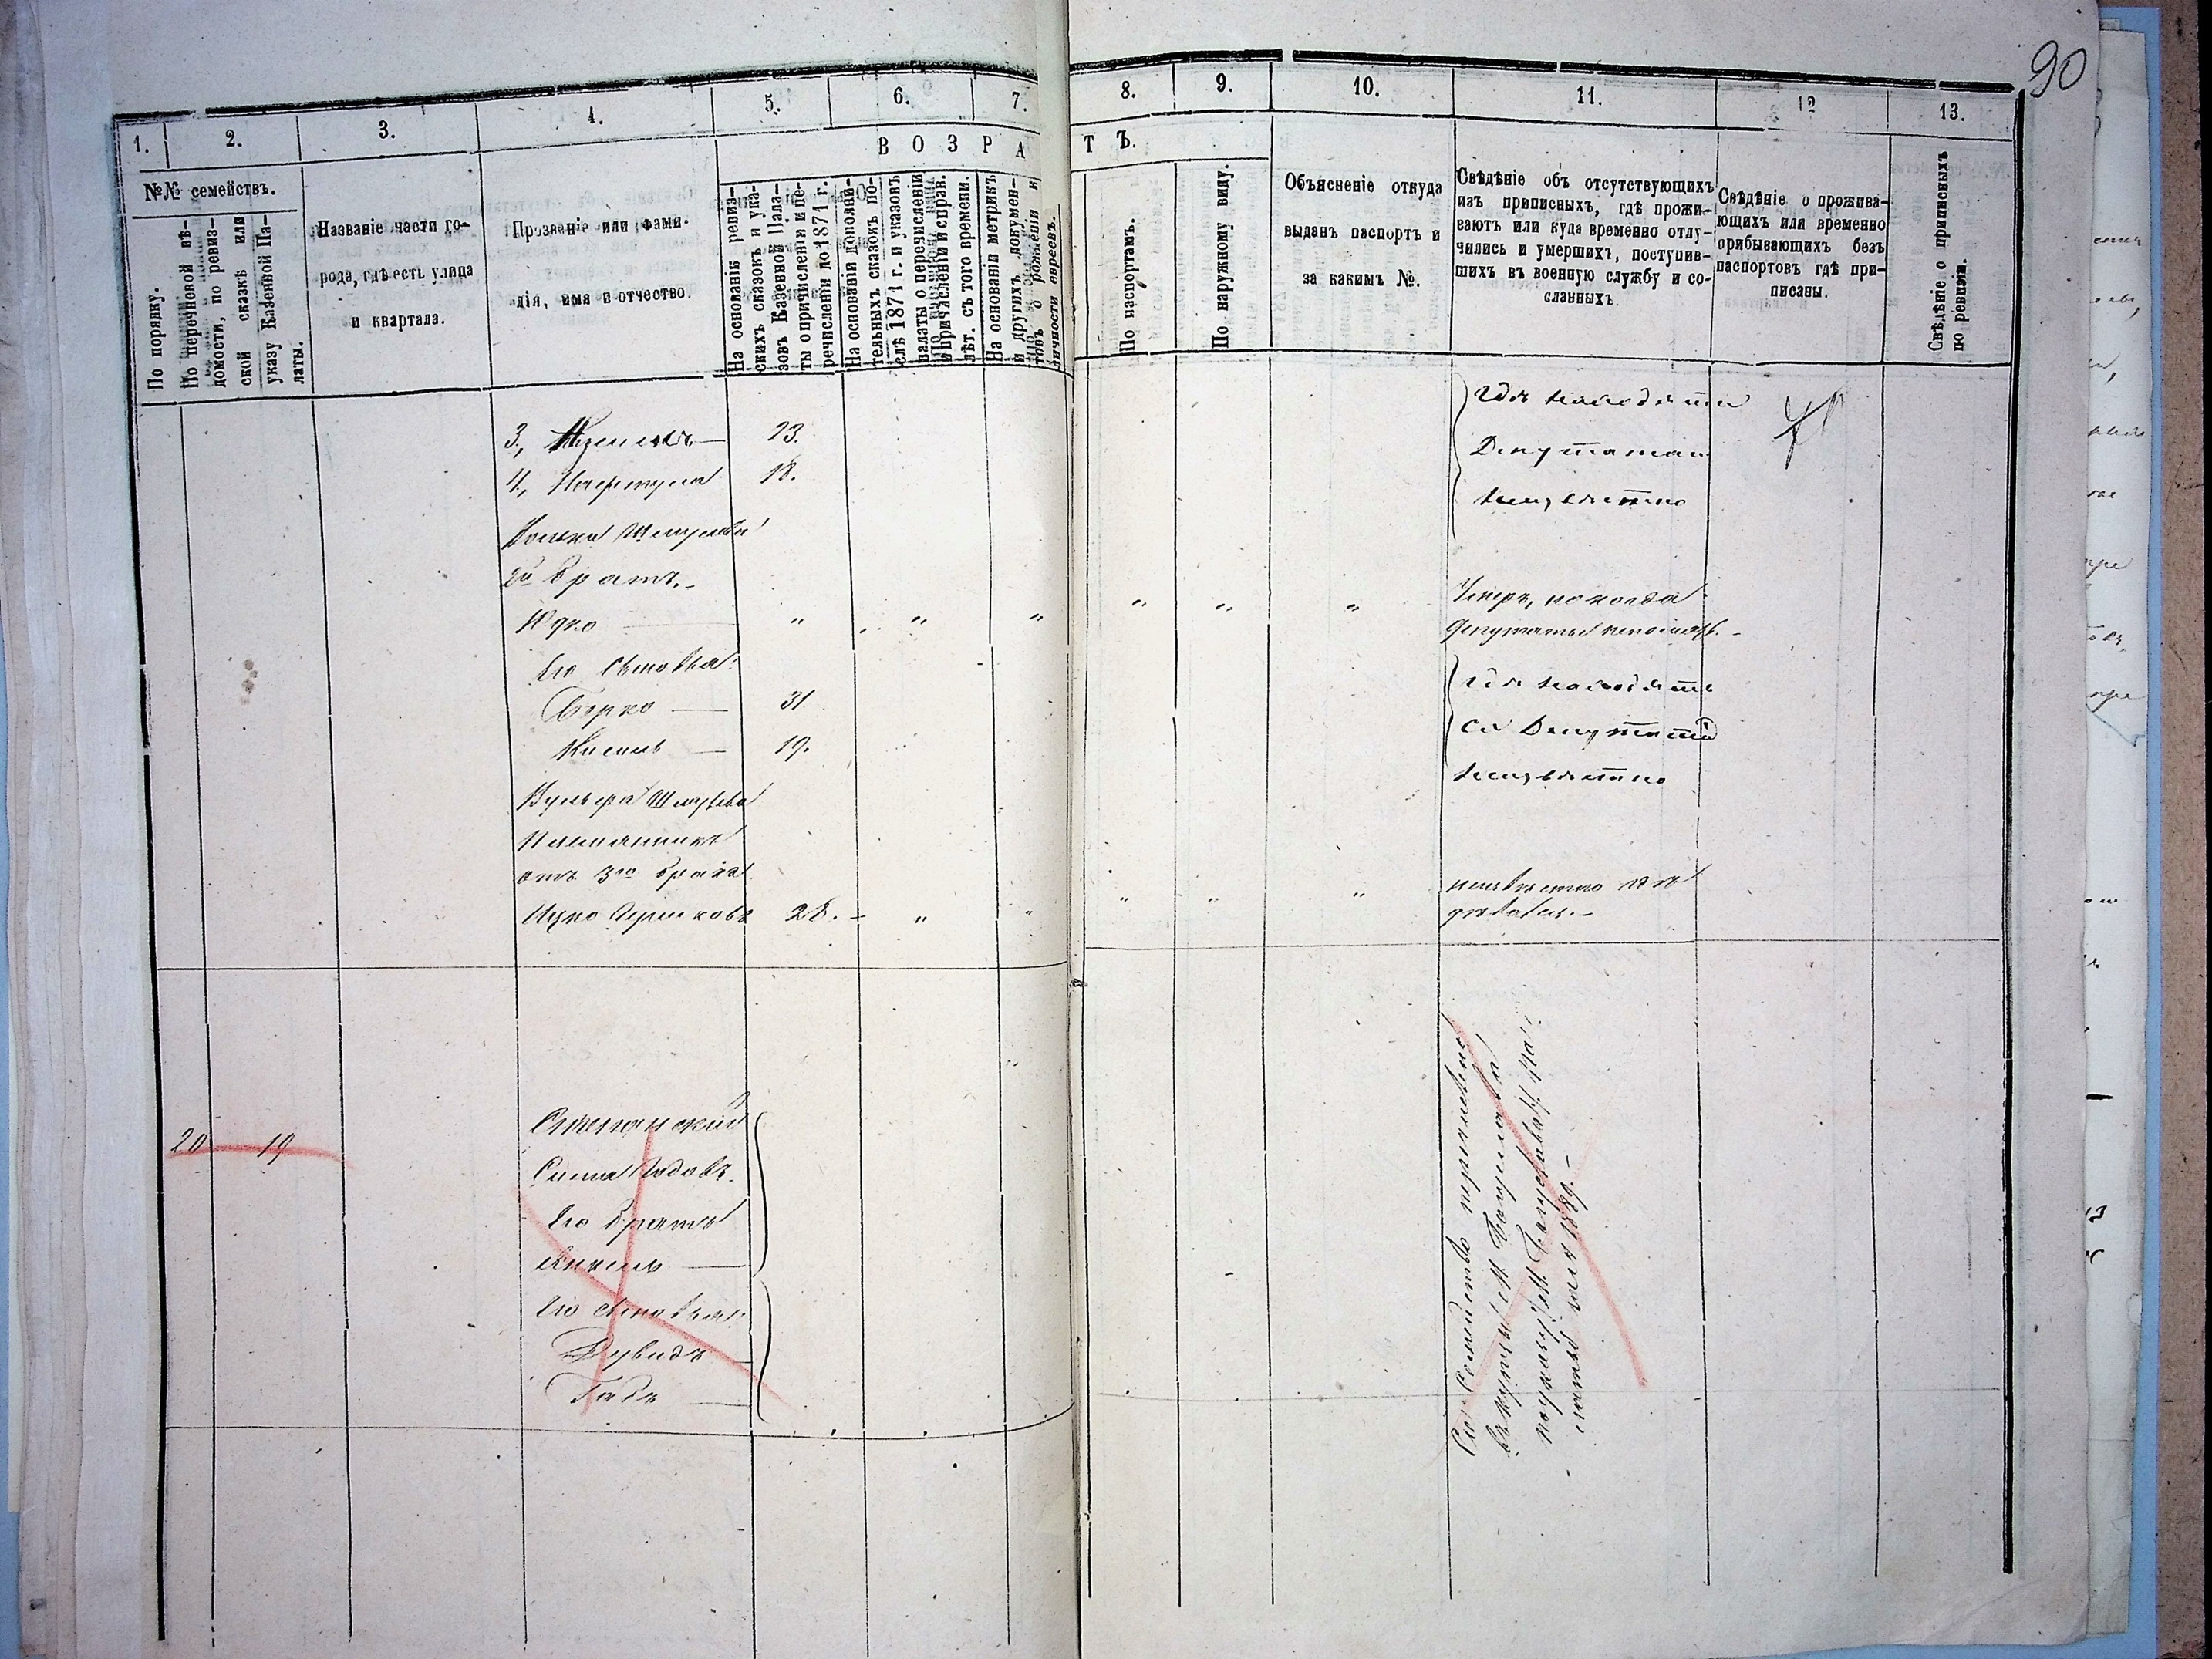 90
1.
2.
3.
4.
5.
6.
7.
8.
9.
10.
11.
12
13.
В О З Р А
Т Ъ.
№№ семействъ.
По порядку.
По перечневой вѣ-
домости, по ревиз-
ской сказкѣ или
указу Казенной Па-
латы.
Названіе части го-
рода, гдѣ есть улица
и квартала.
Прозваніе или фами-
лія, имя и отчество.
На основаніи ревиз-
скихъ сказокъ и ука-
зовъ Казенной Пала-
ты о причисленіи и пе-
речисленіи до 1871 г.
На основаніи дополни-
тельныхъ сказокъ по-
слѣ 1871 г. и указовъ
палаты о перечисленіи
и причисленіи и справ.
лѣт. съ того времени.
На основаніи метрикъ
и другихъ докумен-
товъ о рожденіи и
личности евреевъ.
По паспортамъ.
По наружному виду.
Объясненіе откуда
выданъ паспортъ и
за какимъ №.
Свѣдѣніе объ отсутствующихъ
изъ приписныхъ, гдѣ прожи-
ваютъ или куда временно отлу-
чились и умершихъ, поступив-
шихъ въ военную службу и со-
сланныхъ.
Свѣдѣніе о прожива-
ющихъ или временно
прибывающихъ безъ
паспортовъ гдѣ при-
писаны.
Свѣдѣніе о приписныхъ
по ревизіи.
3, 23.
4, Нафтула 18.
гдѣ находятся
Депутатам
неизвѣстно
Шмулева
2й братъ.
Юдко " " " " " "
Умеръ, но когда
депутаты
Его сыновья:
Берко — 31
Кисель — 19.
гдѣ находятъ
ся Депутатам
неизвѣстно
Вульфа Шмулева
Племянникъ
отъ 3го брата
Ицко Гершковъ 28. " " " " "
неизвѣстно гдѣ
дѣвался.
20 19
Степанский
Симха
Его братъ
Кисель —
Его сыновья:
Дувидъ —
Гадъ —
Сіе Семейство перечислено
въ купцы М.
по указу
1889.